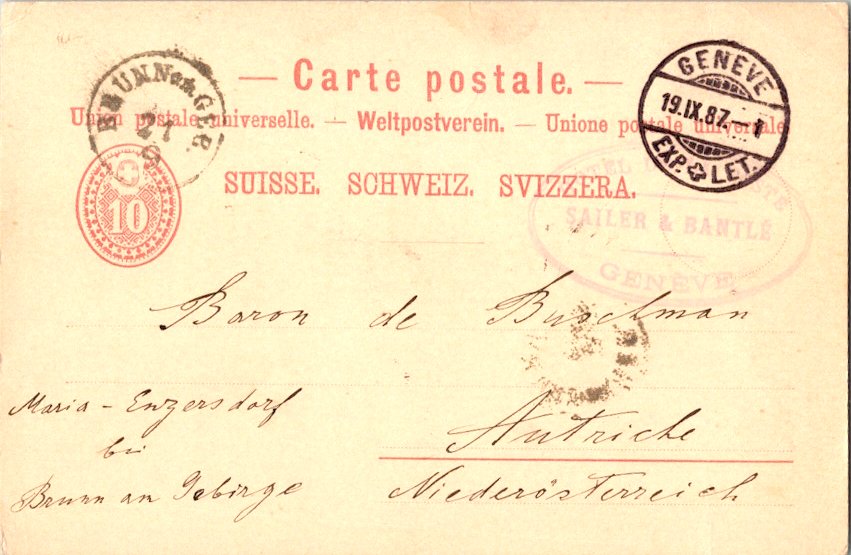 Carte postale.
Union postale universelle. — Weltpostverein. — Unione postale universale.
SUISSE. SCHWEIZ. SVIZZERA.
10
BRUNN
21
9
GENÈVE
19.IX.87.–
EXP. LET.
SAILER & BANTLÉ
GENÈVE
Baron de Buschman
Maria - Enzersdorf
bei
Brunn an Gebirge
Autriche
Niederösterreich